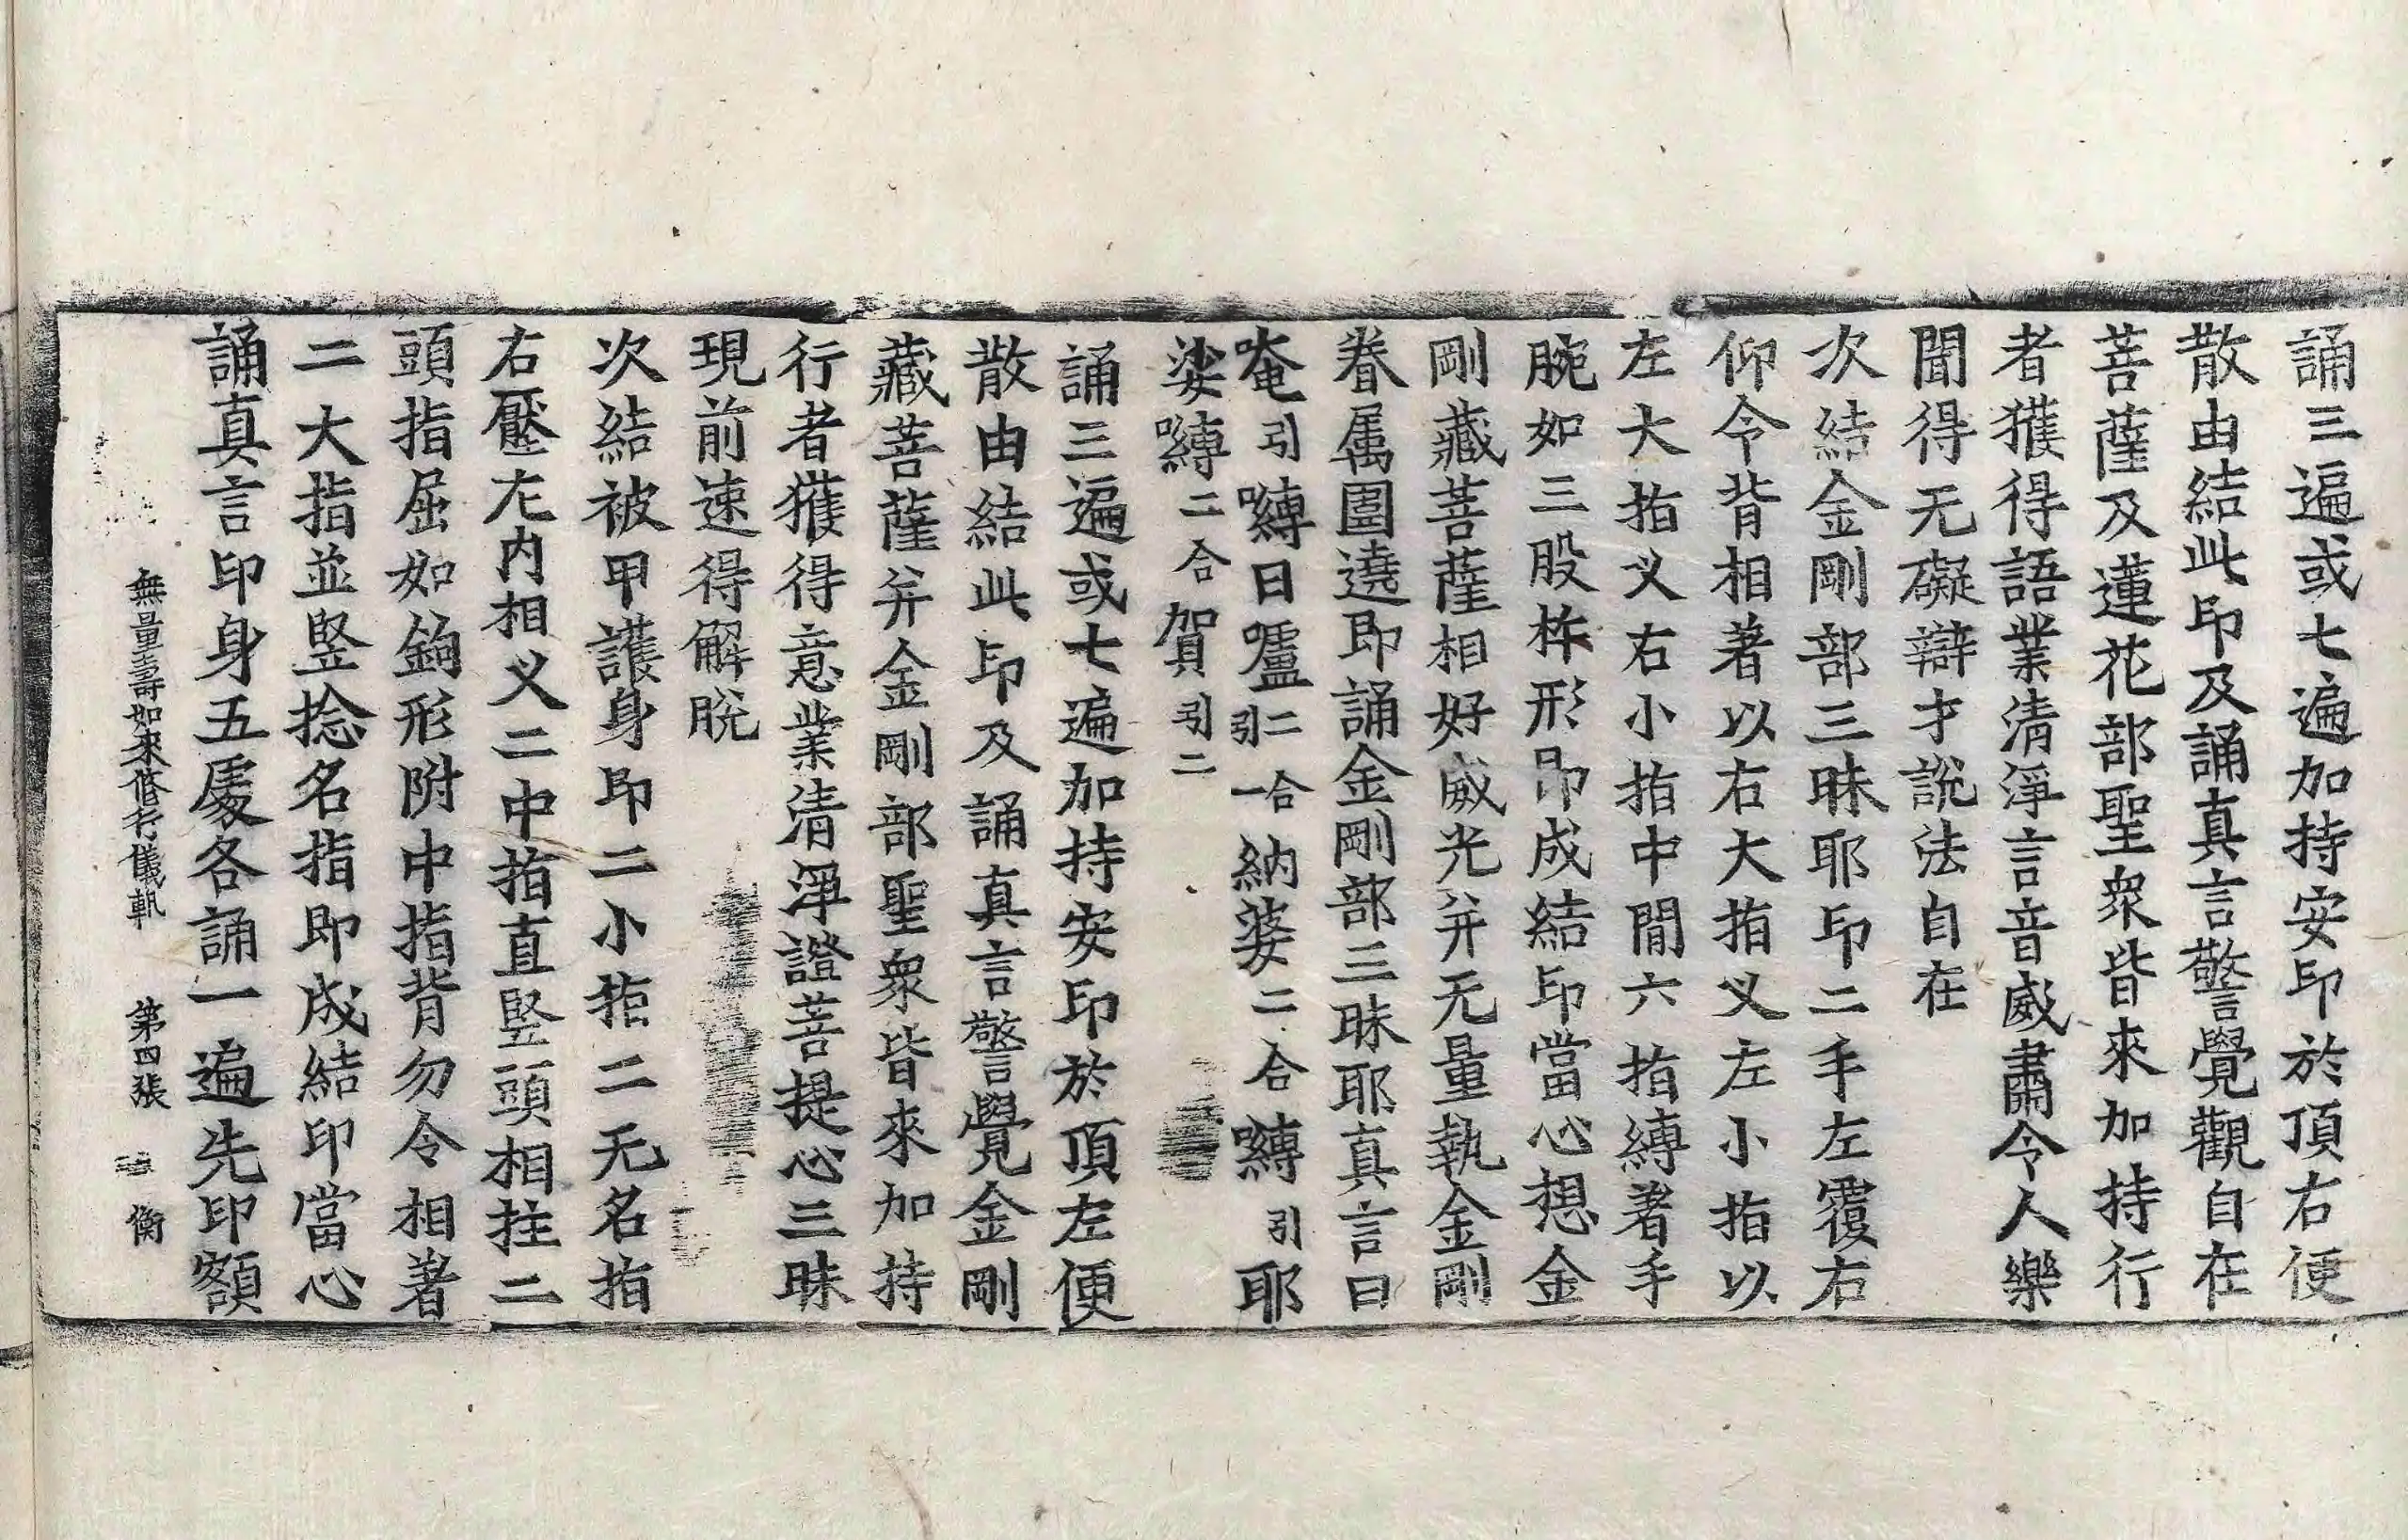 誦三遍或七遍加持安印於頂右便
散由結此印及誦真言警覺觀自在
菩薩及蓮花部聖衆皆來加持行
者獲得語業清淨言音威肅令人樂
聞得无礙辯才說法自在
次結金剛部三昧耶印二手左覆右
仰令背相著以右大指叉左小指以
左大指叉右小指中間六指縛著手
腕如三股杵形即成結印當心想金
剛藏菩薩相好威光并无量執金剛
眷属圍遶即誦金剛部三昧耶真言曰
唵引嚩日嚧二合引一納婆二合嚩引耶
娑嚩二合賀引二
誦三遍或七遍加持安印於頂左便
散由結此印及誦真言警覺金剛
藏菩薩并金剛部聖衆皆來加持
行者獲得意業清淨證菩提心三昧
現前速得解脫
次結被甲護身印二小指二无名指
右壓左内相叉二中指直竪頭相拄二
頭指屈如鉤形附中指背勿令相著
二大指並竪捻名指即成結印當心
誦真言印身五處各誦一遍先印額
無量壽如來修行儀軌　第四張　衡